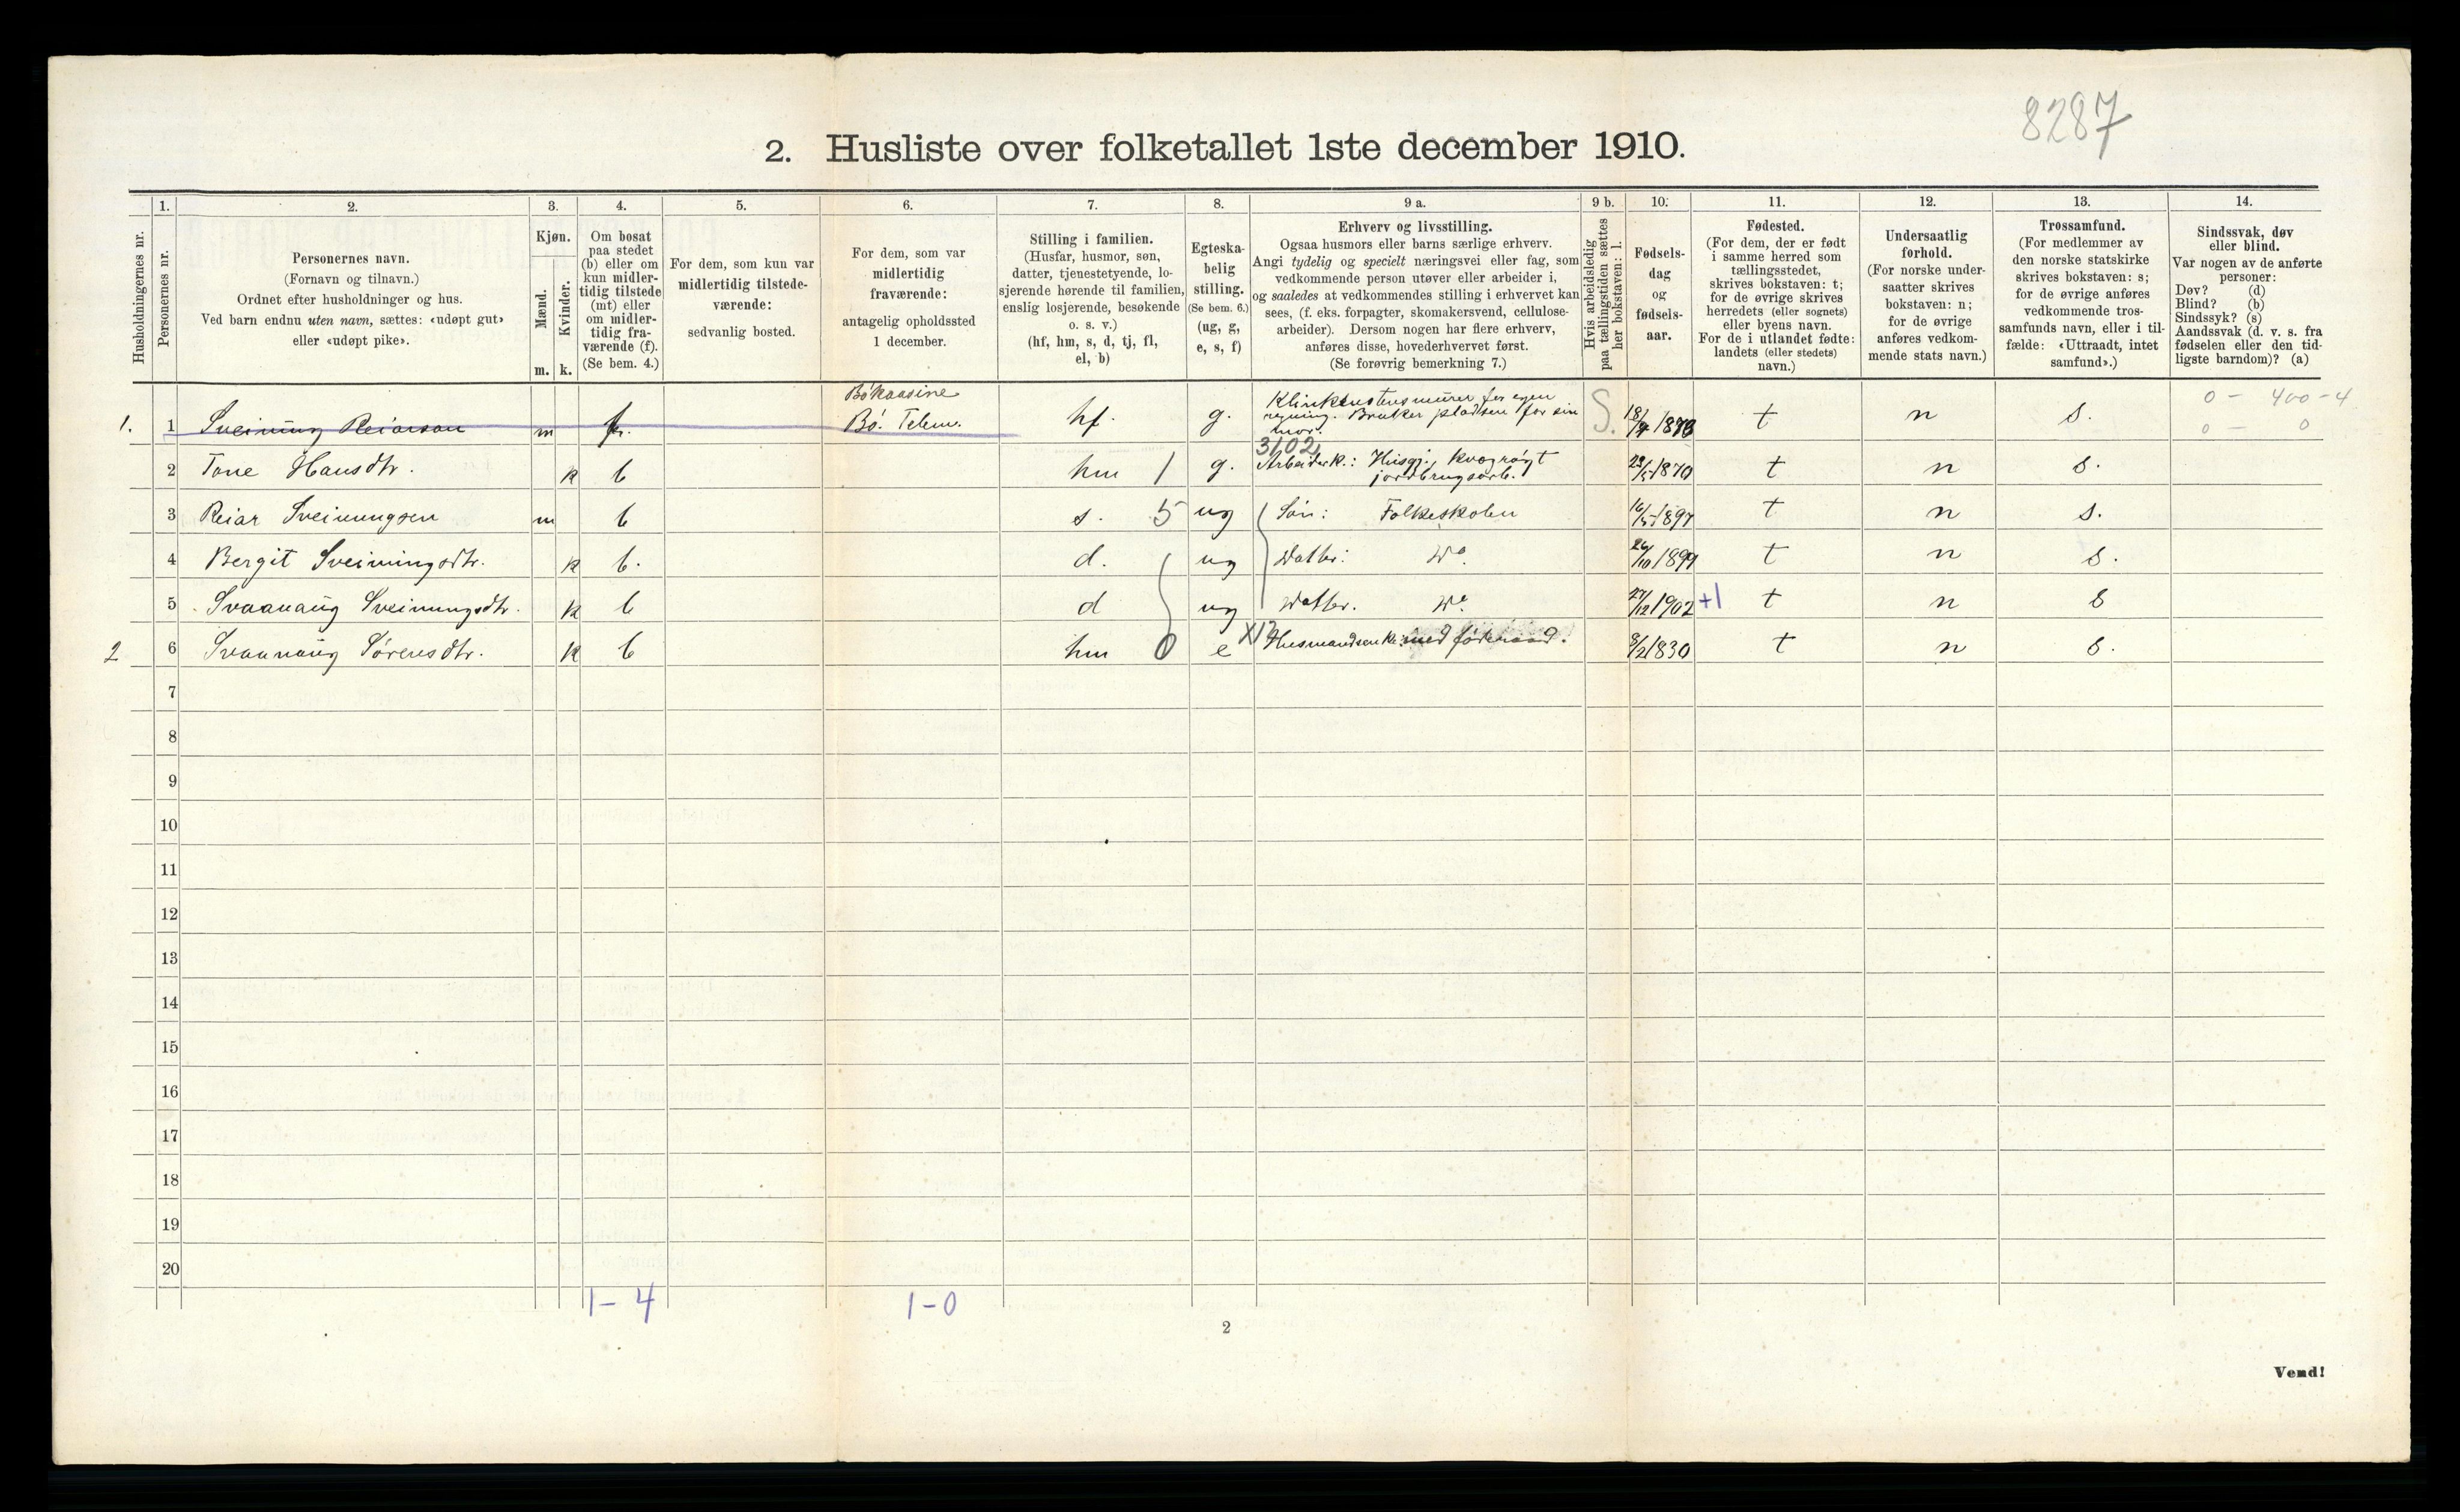 8287
2. Husliste over folketallet 1ste december 1910.
Husholdningernes nr.
1.
Personernes nr.
2.
Personernes navn.
(Fornavn og tilnavn.)
Ordnet efter husholdninger og hus.
Ved barn endnu uten navn, sættes: «udøpt gut»
eller «udøpt pike».
3.
Kjøn.
Mænd.
Kvinder.
m. k.
4.
Om bosat
paa stedet
(b) eller om
kun midler-
tidig tilstede
(mt) eller
om midler-
tidig fra-
værende (f).
(Se bem. 4.)
5.
For dem, som kun var
midlertidig tilstede-
værende:
sedvanlig bosted.
6.
For dem, som var
midlertidig
fraværende:
antagelig opholdssted
1 december.
7.
Stilling i familien.
(Husfar, husmor, søn,
datter, tjenestetyende, lo-
sjerende hørende til familien,
enslig losjerende, besøkende
o. s. v.)
(hf, hm, s, d, tj, fl,
el, b)
8.
Egteska-
belig
stilling.
(Se bem. 6.)
(ug, g,
e, s, f)
9 a.
Erhverv og livsstilling.
Ogsaa husmors eller barns særlige erhverv.
Angi tydelig og specielt næringsvei eller fag, som
vedkommende person utøver eller arbeider i,
og saaledes at vedkommendes stilling i erhvervet kan
sees, (f. eks. forpagter, skomakersvend, cellulose-
arbeider). Dersom nogen har flere erhverv,
anføres disse, hovederhvervet først.
(Se forøvrig bemerkning 7.)
9 b.
Hvis arbeidsledig
paa tællingstiden sættes
her bokstaven: l.
10.
Fødsels-
dag
og
fødsels-
aar.
11.
Fødested.
(For dem, der er født
i samme herred som
tællingsstedet,
skrives bokstaven: t;
for de øvrige skrives
herredets (eller sognets)
eller byens navn.
For de i utlandet fødte:
landets (eller stedets)
navn.)
12.
Undersaatlig
forhold.
(For norske under-
saatter skrives
bokstaven: n;
for de øvrige
anføres vedkom-
mende stats navn.)
13.
Trossamfund.
(For medlemmer av
den norske statskirke
skrives bokstaven: s;
for de øvrige anføres
vedkommende tros-
samfunds navn, eller i til-
fælde: «Uttraadt, intet
samfund».)
14.
Sindssvak, døv
eller blind.
Var nogen av de anførte
personer:
Døv? (d)
Blind? (b)
Sindssyk? (s)
Aandssvak (d. v. s. fra
fødselen eller den tid-
ligste barndom)? (a)
1. 1 Sveinung Reiarson m f. Bø Telem. hf. g. regning. Bruker pladsen for sin mor. S. t n s. 0 - 400 - 4
0 - 0
3102
2 Tone Hansdtr. k b hm 1 g. Arbeidsk.: Husgj., kvægrøgt jordbrugsarb. 1870 t n s.
3 Reiar Sveinungsen m b s. 5 ug Søn: Folkeskolen 16/5 1897 t n s.
4 Bergit Sveinungsdtr. k b. d. ug Datter: Do. 26/10 1899 t n s.
5 Svaanaug Sveinungsdtr. k b d ug Datter. Do. 27/12 1902 +1 t n s
2 6 Svaanaug Sørensdtr. k b hm 0 e Husmandsenke: med føderaad. 8/2 1830 t n s.
7
8
9
10
11
12
13
14
15
16
17
18
19
20
1 - 4 1 - 0
2
Vend!